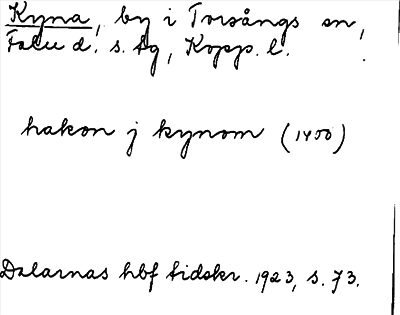 Kyna, by i Torsångs sn,
Falu d. s. tg, Kopp. l.
hakon j kynom (1400)
Dalarnas hbf tidskr. 1923, s. 73.